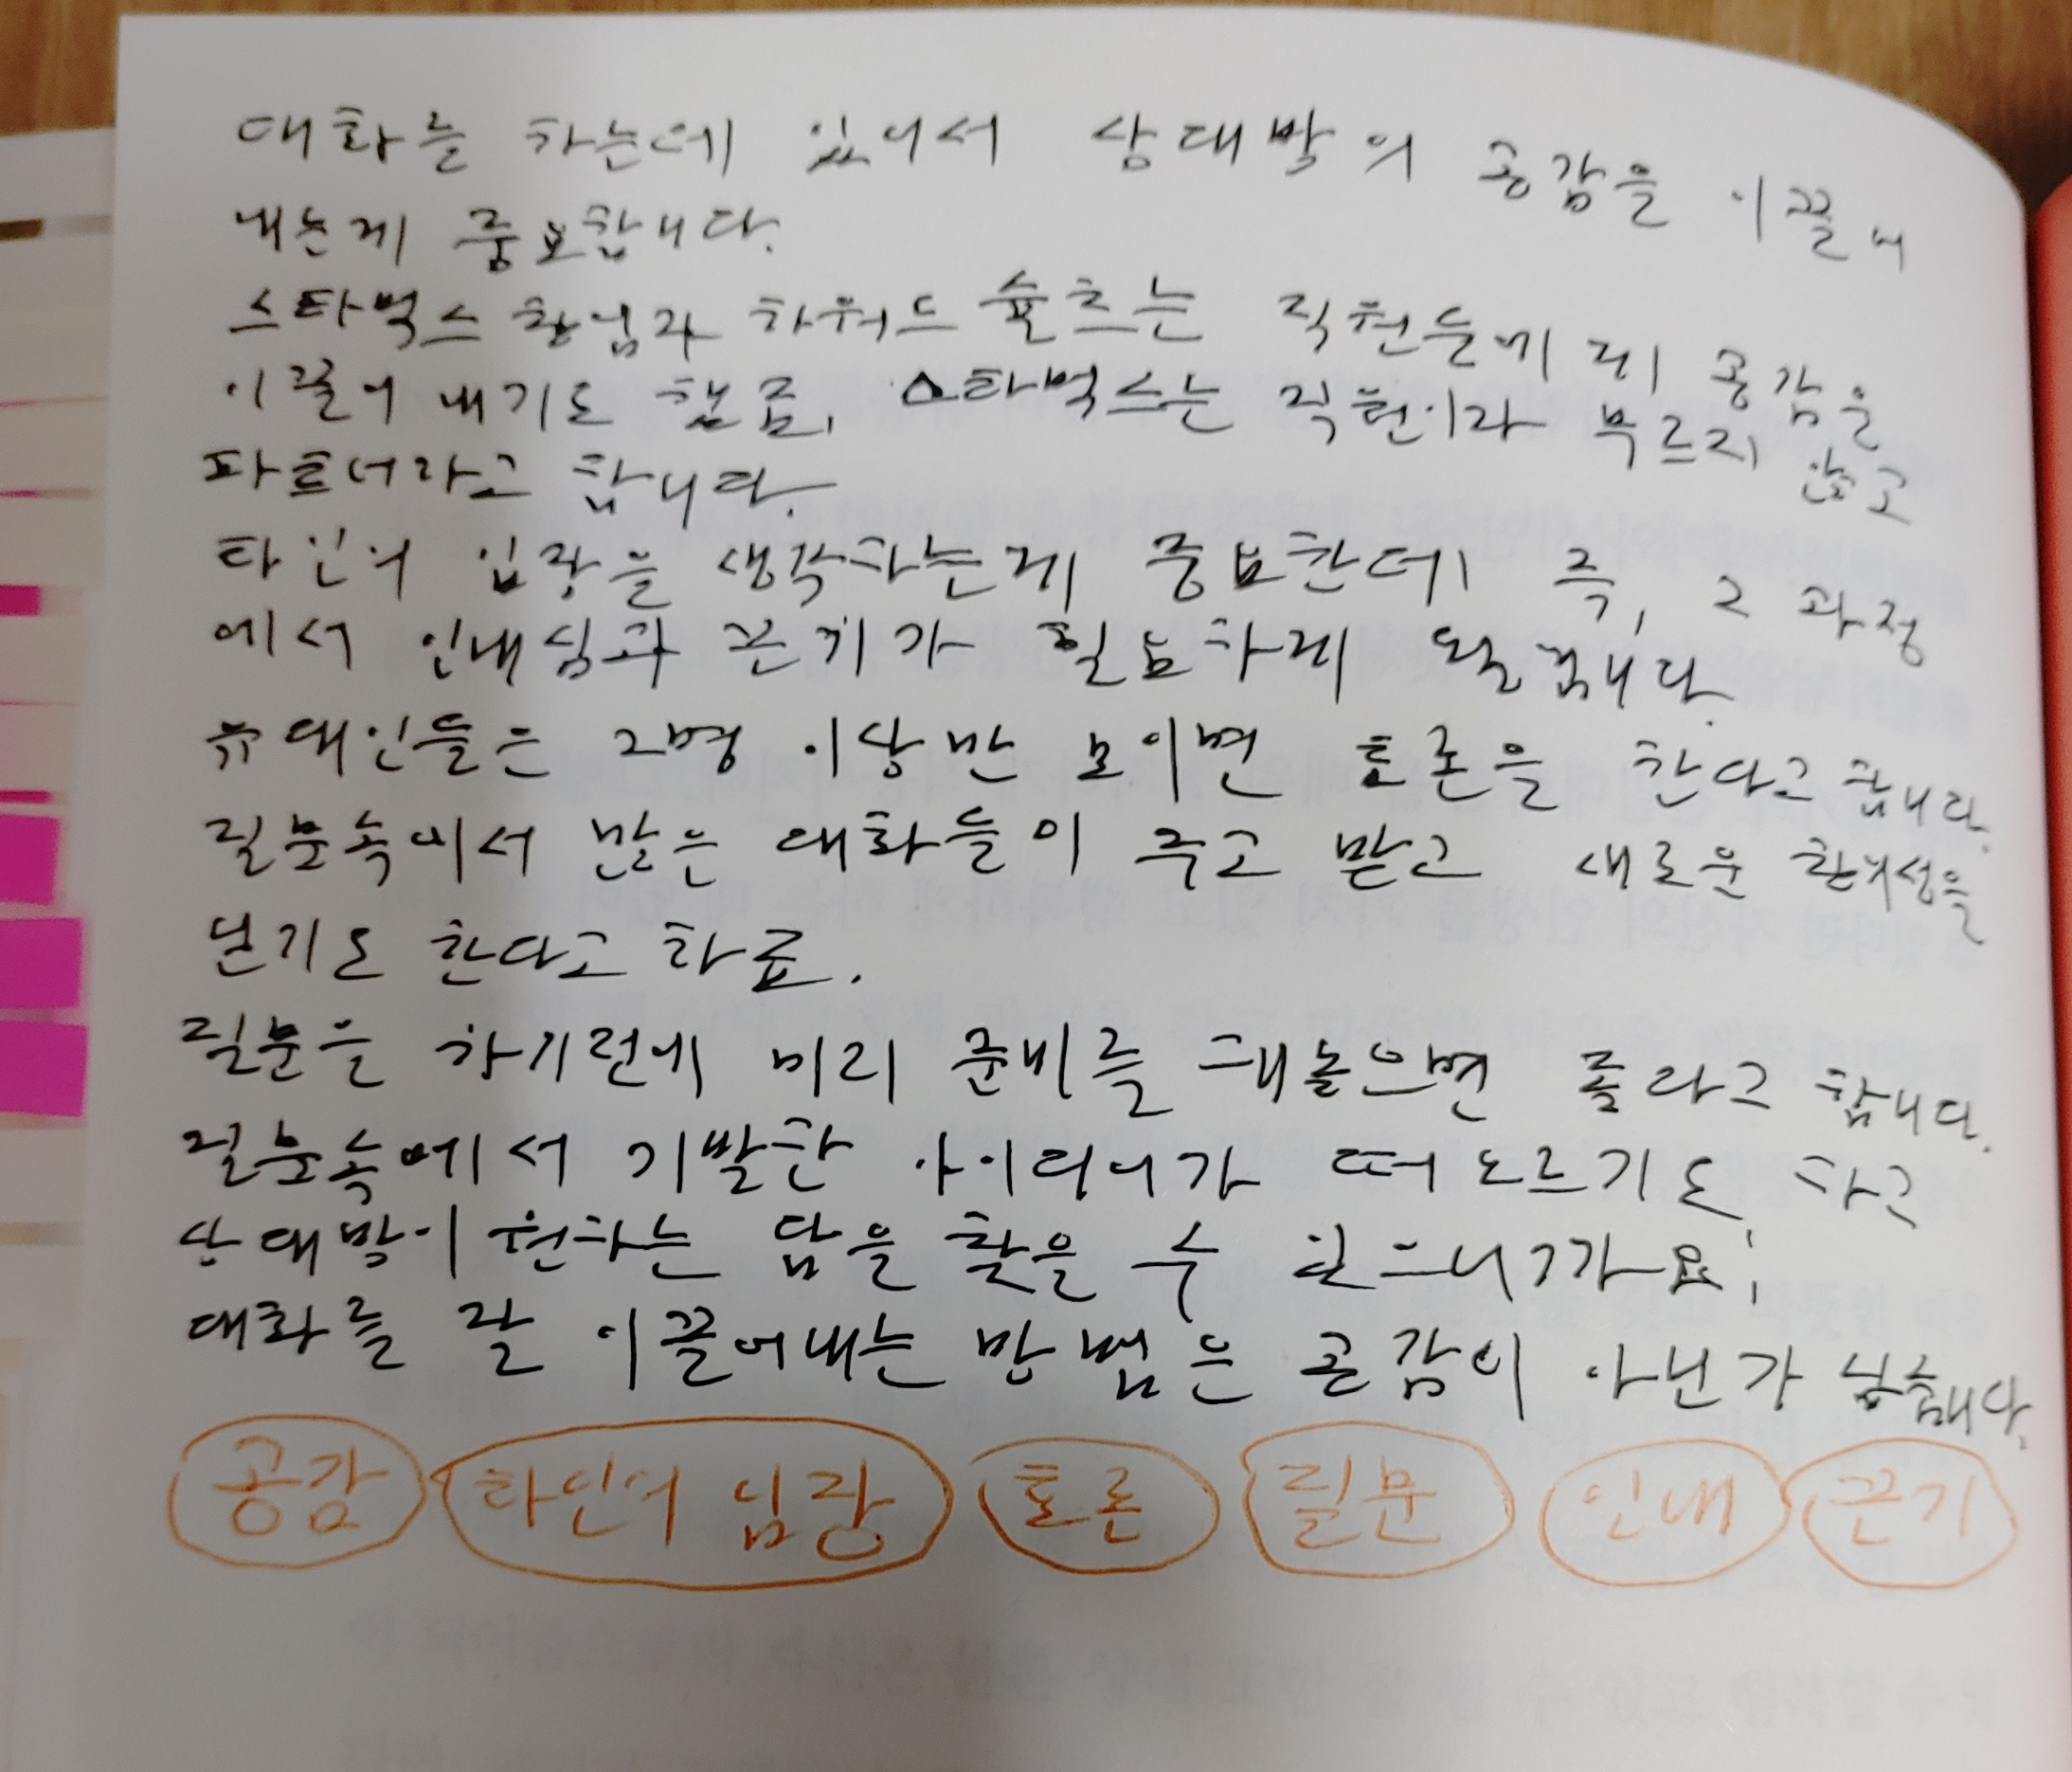 대화를 하는데 있어서 상대방의 공감을 이끌어
내는게 중요합니다.
스타벅스 창업자 하워드 슐츠는 직원들에게 공감을
이끌어 내기도 했죠. 스타벅스는 직원이라 부르지 않고
파트너라고 합니다.
타인의 입장을 생각하는게 중요한데 즉, 그 과정
에서 인내심과 끈기가 필요하게 될겁니다.
유대인들은 2명 이상만 모이면 토론을 한다고 합니다.
질문속에서 많은 대화들이 주고 받고 새로운 관계성을
맺기도 한다고 하죠.
질문을 하기전에 미리 준비를 해놓으면 좋다고 합니다.
질문속에서 기발한 아이디어가 떠오르기도 하고
상대방이 원하는 답을 찾을 수 있으니까요!
대화를 잘 이끌어내는 방법은 공감이 아닌가 싶습니다.
공감 타인의 입장 토론 질문 인내 끈기